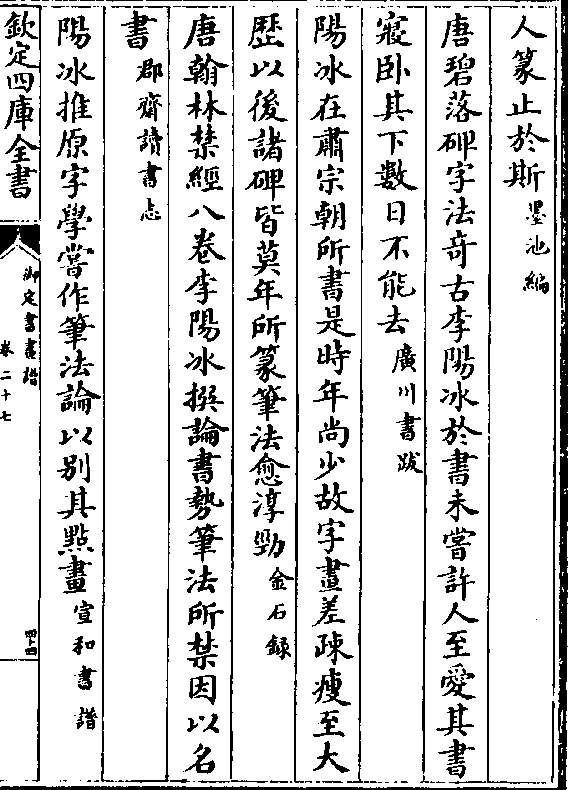 人篆止於斯墨池編
唐碧落碑字法竒古李陽冰於書未嘗許人至愛其書
寢卧其下數日不能去廣川書跋
陽冰在肅宗朝所書是時年尚少故字畫差疎瘦至大
歴以後諸碑皆莫年所篆筆法愈淳勁金石録
唐翰林禁經八卷李陽冰撰論書勢筆法所禁因以名
書郡齋讀書志
陽冰推原字學嘗作筆法論以别其點畫宣和書譜
欽定四庫全書
御定書畫譜
卷二十七
四十四